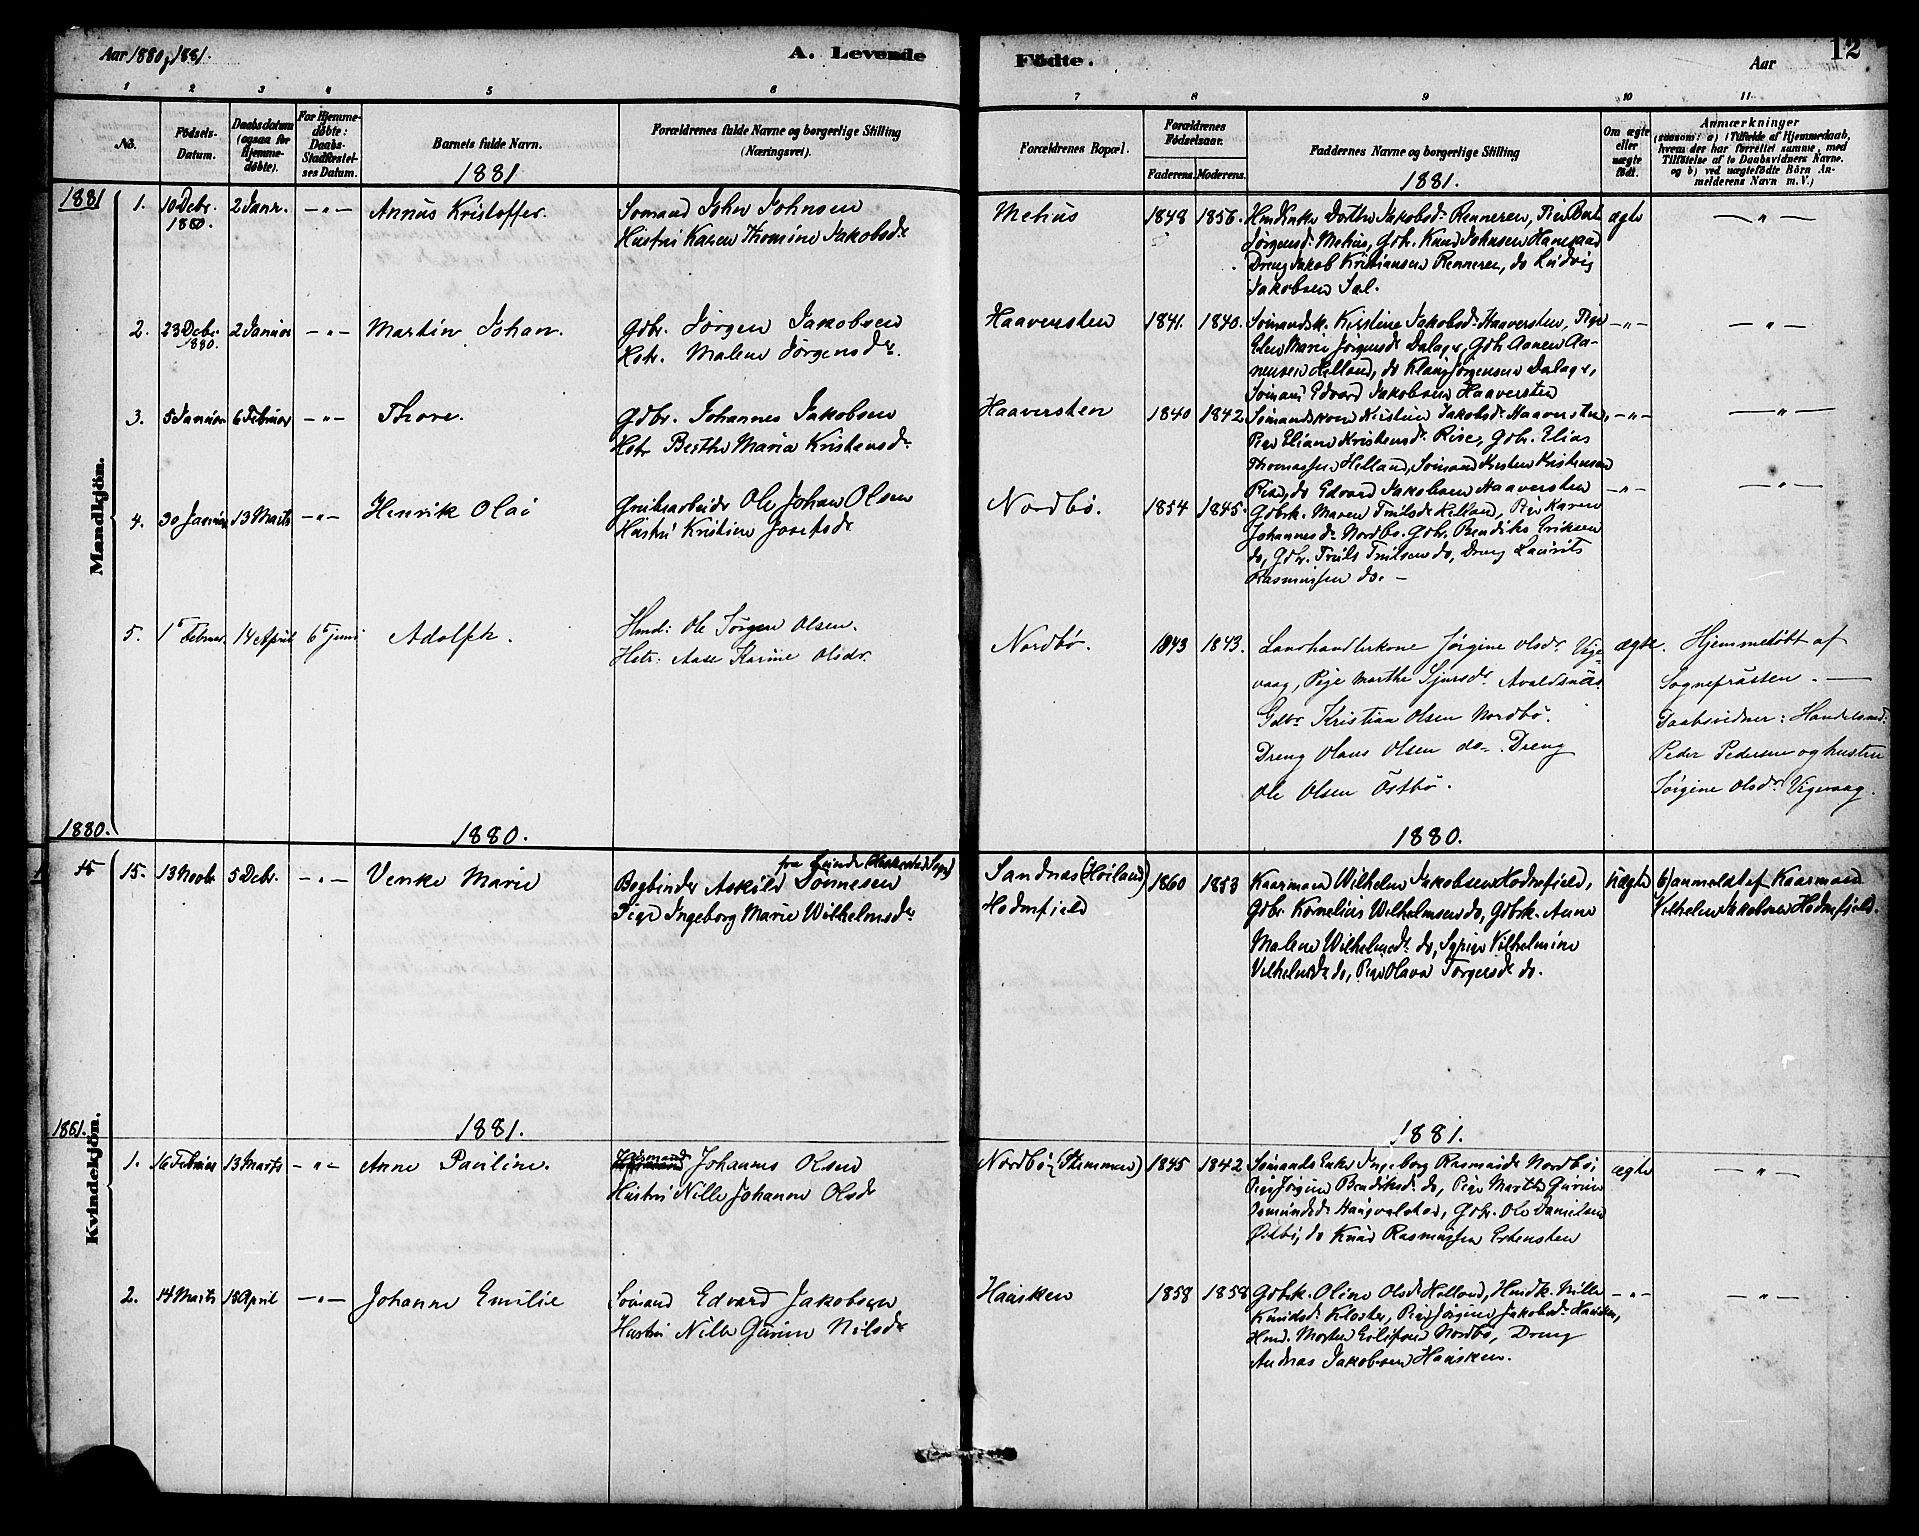 Aar 1880, 1881.
A. Levende
Födte.
Aar
12
1
2
3
4
5
6
7
8
9
10
11
No.
Födsels-
Datum.
Daabsdatum
(ogsaa for
Hjemme-
döbte).
For Hjemme-
döbte:
Daabs-
Stadfæstel-
ses Datum.
Barnets fulde Navn.
Forældrenes fulde Navne og borgerlige Stilling
(Næringsvei).
Forældrenes Bopæl.
Forældrenes
Födselsaar.
Faderens.
Moderens.
Faddernes Navne og borgerlige Stilling
Om ægte
eller
uægte
födt.
Anmærkninger
(saasom: a) i Tilfælde af Hjemmedaab,
hvem der har forrettet samme, med
Tilföielse af to Daabsvidners Navne.
og b) ved uægtefödte Börn An-
melderens Navn m. V.)
1881
1881
1881.
Mandkjön.
1. 10 Decbr. 1880. 2 Janr. —"— Annus Kristoffer.
Sömand John Johnsen
Hustru Karen Thomine Jakobsdr
Mehus 1848 1856.
Dorthe Jakobsdr Renneren, Pige Bert
Jörgensdr Mehus, Gdbr. Knud Johnsen Hanegaard
Dreng Jakob Kristiansen Renneren, do Ludvig
Jakobsen Sæl.
ægte —"—
2. 23 Decbr. 1880. 2 Januar —"— Martin Johan.
Gdbr. Jörgen Jakobsen
Hstr. Malene Jörgensdr.
Haaversten 1841. 1840.
Sömandsk. Kirstine Jakobsdr Haaversten, Pige
Elen Marie Jörgensdr Dalage, Gdbr Aanen Aa-
nensen Helland, do Klaus Jörgensen Dalage,
Sömand Edvard Jakobsen Haaversten
—"— —"—
3. 5 Januar 6 Februar —"— Thore.
Gdbr. Johannes Jakobsen
Hstr Berthe Maria Kristensdr
Haaversten 1840 1842
Sömandskone Kristine Jakobsdr Haaversten,
Pige Eliane Kristensdr Rise, Gdbr. Elias
Thomassen Helland, Sömand Kristen Kristensen
Rise, do Edvard Jakobsen Haaversten
—"— —"—
4. 30 Januar 13 Marts —"— Henrik Olai
Grubearbeider Ole Johan Olsen
Hustru Kristine Josefsdr
Nordbö. 1854 1845.
Gdbrk. Maren Trulsdr Helland, Pige Karen
Johannesdr Nordbö. Gdbr. Bendiks Eriksen
do, Gdbr. Truls Trulsen do, Dreng Laurits
Rasmussen do. —
—"— —"—
5. 1 Februar 14 April 6 juni Adolfh.
Hmd: Ole Jörgen Olsen.
Hstr: Aase Karine Olsdr.
Nordbø. 1843 1843.
Landhandlerkone Jørgine Olsdr Vige-
vaag, Pige Marthe Sjursdr Avaldsnæs.
Gdbr Kristian Olsen Nordbø.
Dreng Olaus Olsen do. Dreng
Ole Olsen Östbø.
ægte.
Hjemmedøbt af
Sognepræsten. —
Daabsvidner: Handelsmd:
Peder Pedersen og hustru
Jørgine Olsdr Vigevaag.
1880.
1880.
1880.
Kvindekjön.
15. 13 Novbr 5 Decbr. —"— Venke Marie
Bogbinder Askild Tönnesen
Pige Ingeborg Marie Wilhelmsdr
Sandnæs (Höiland) 1860 1853
Hodnefjeld
Kaarmand Wilhelm Jakobsen Hodnefjeld,
Gdbr. Kornelius Wilhelmsen do, Gdbrk. Anne
Malene Wilhelmsdr do, Sypige Vilhelmine
Vilhelmsdr do, Pige Olava Torgersdr do.
Uægte
b) anmeldt af Kaarmand
Vilhelm Jakobsen Hodnefjeld.
1881.
1881.
1881.
1. 16 Februar 13 Marts —"— Anne Pauline.
Johannes Olsen
Hustru Nille Johanne Olsdr
Nordbö (Stemmen) 1845 1842
Sömands Enke Ingeborg Rasmusdr Nordbö,
Pige Jörgine Bendiksdr do, Pige Marthe Gurine
Osmundsdr Haugvalstad, Gdbr. Ole Danielsen
Östbö, do Knud Rasmussen Eltensten
ægte —"—
2. 14 Marts 18 April —"— Johanne Emilie
Sömand Edvard Jakobsen
Hustru Nille Gurine Nilsdr
Haasken 1858 1858
Gdbrk. Oline Olsdr Helland, Hmdk. Nille
Knudsdr Kloster, Pige Jörgine Jakobsdr Haasken,
Hmd. Morten Eliassen Nordbö, Dreng
Andreas Jakobsen Haasken.
—"— —"—